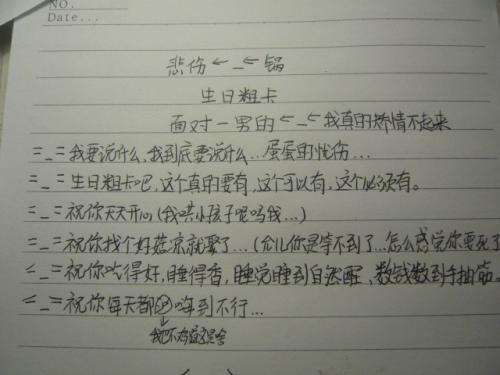 NO.
Date...
悲伤←_←锅
生日粗卡
面对一男的←_←我真的矫情不起来
=_=我要说什么,我到底要说什么...蛋蛋的忧伤...
=_=生日粗卡吧,这个真的要有,这个可以有,这个必须有。
=_=祝你天天开心(我哄小孩子呢吗我...)
=_=祝你找个好菇凉就娶了...(允儿你是等不到了...怎么感觉你要死了
<_=祝你吃得好,睡得香,睡觉睡到自然醒、数钱数到手抽筋。
<_=祝你每天都 嗨到不行...